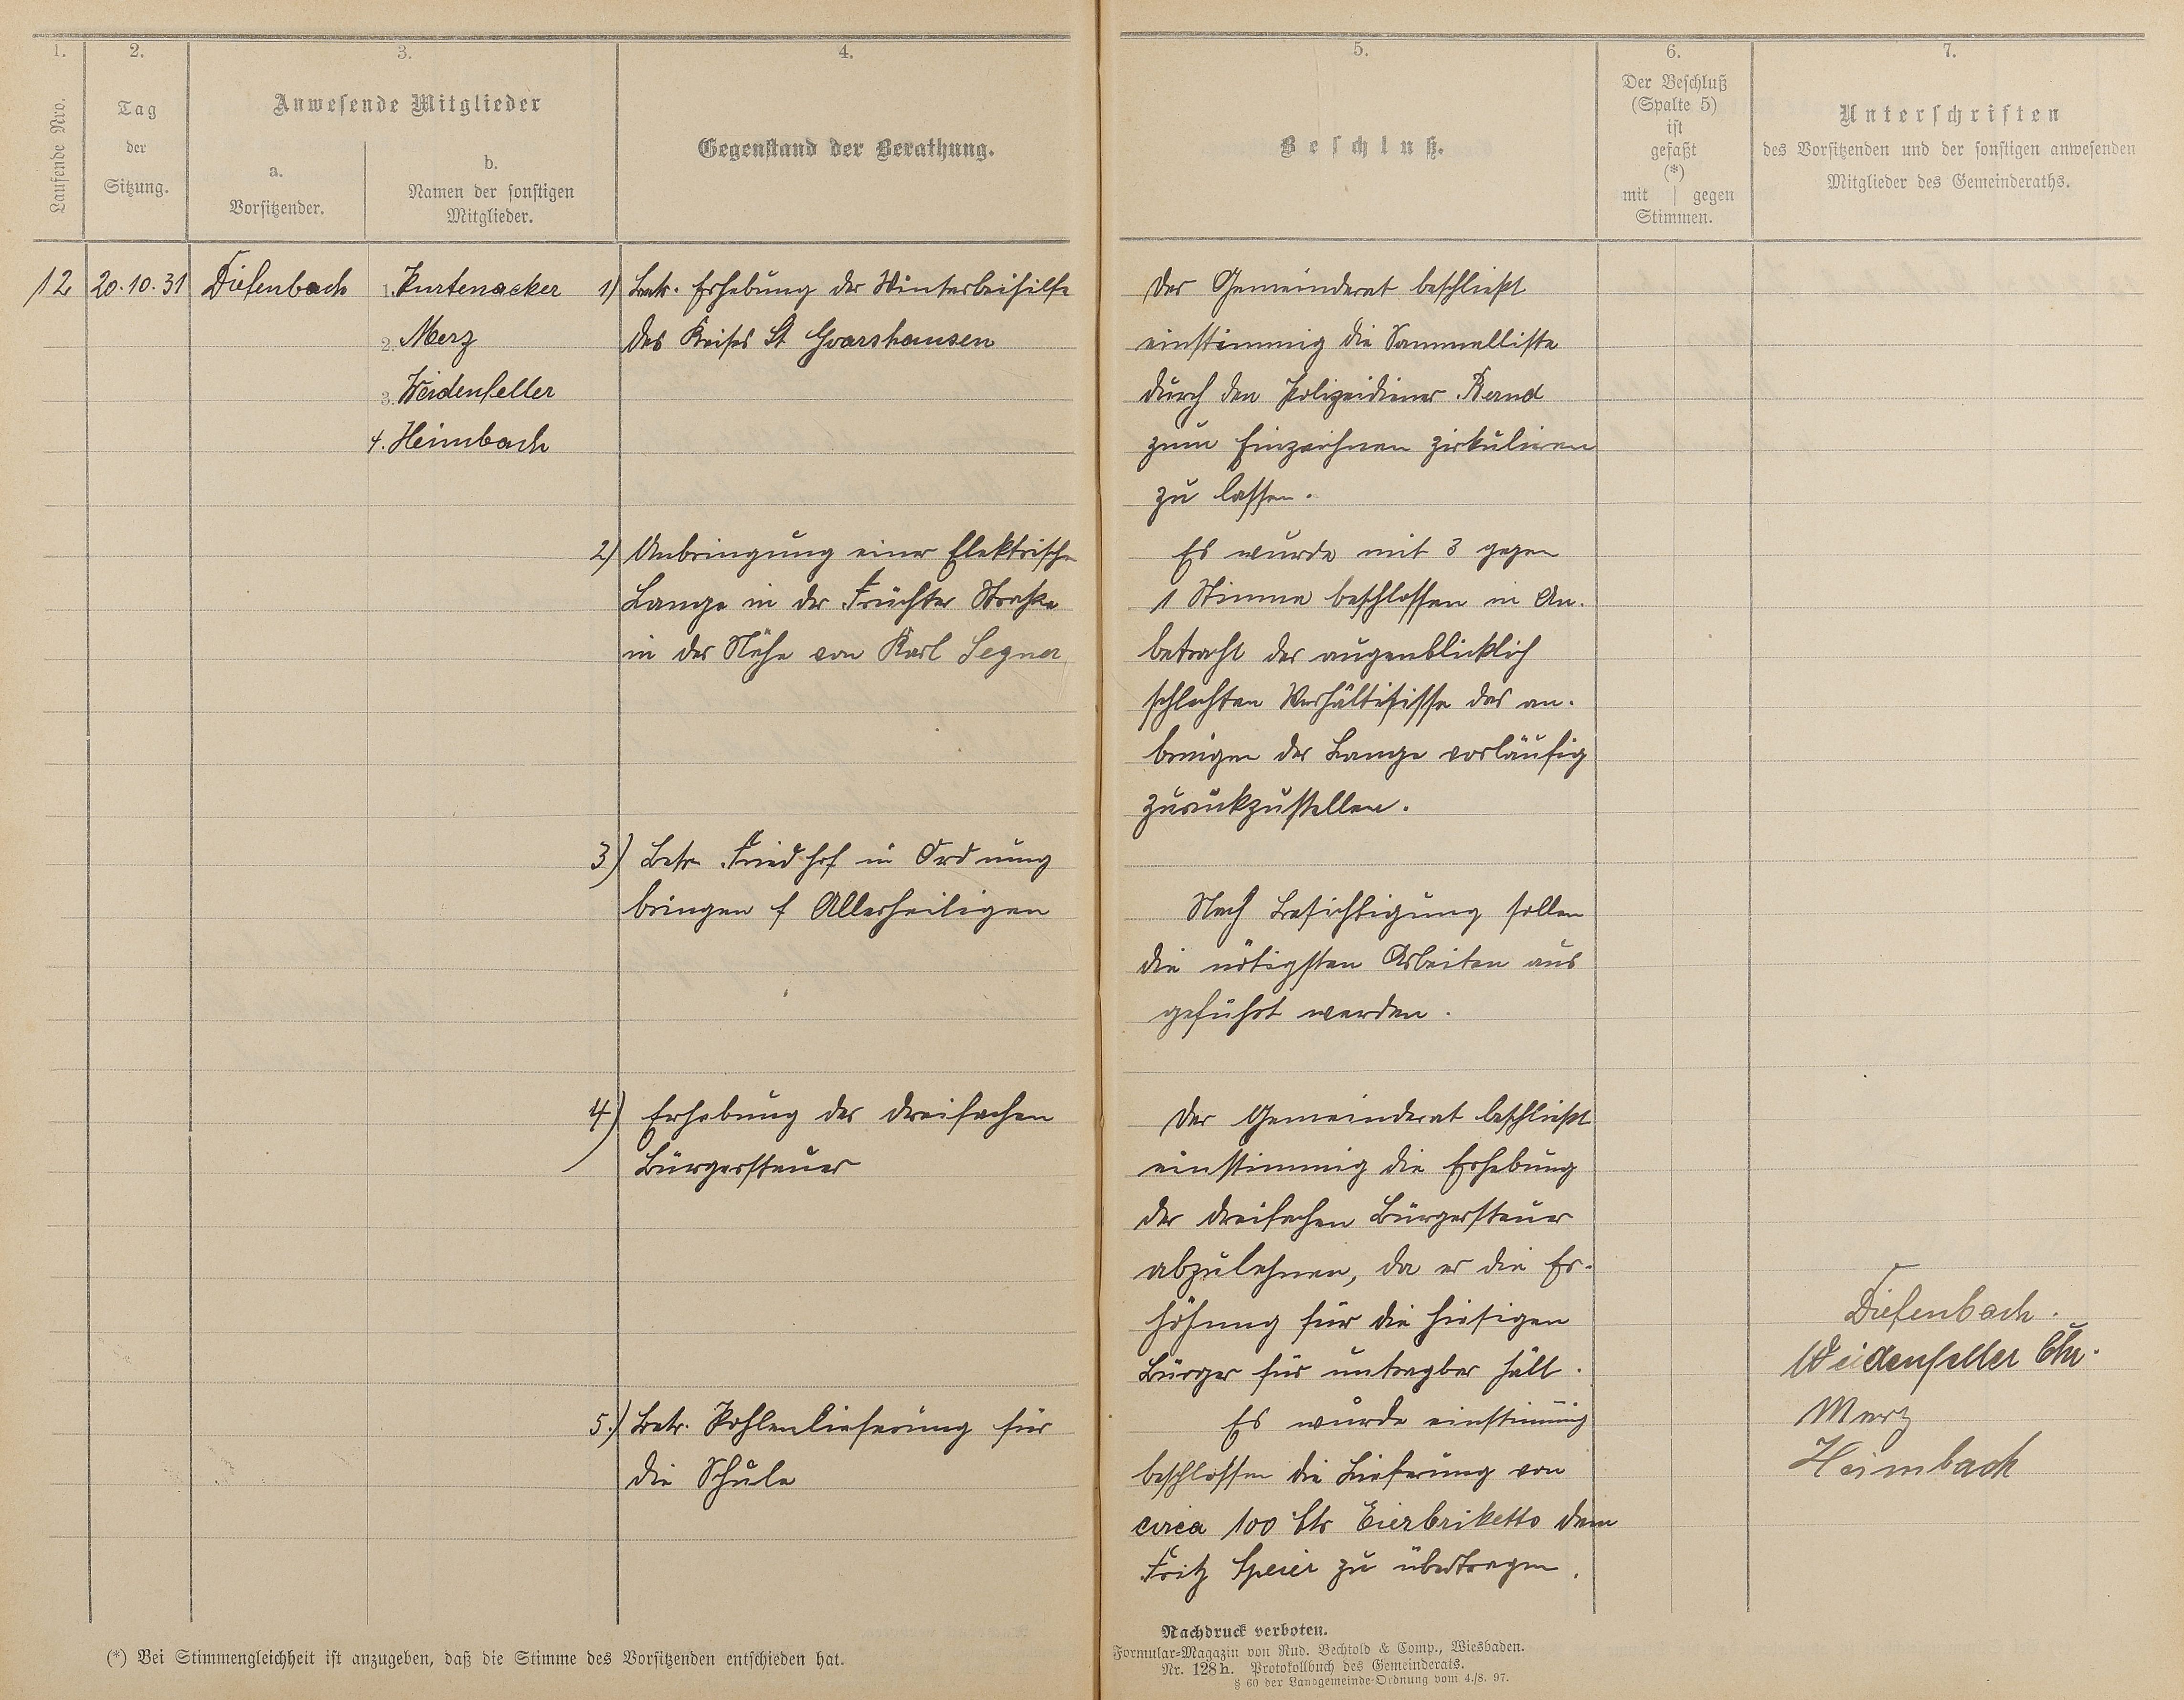 1.
2.
3.
4.
Laufende Nro.
Tag
der
Sitzung.
Anwesende Mitglieder
a.
Vorsitzender.
b.
Namen der sonstigen
Mitglieder.
Gegenstand der Berathung.
12
20.10.31
Diefenbach
1. Kurtenacker
2. Merz
3. Weidenfeller
4. Heimbach
1) Betr. Erhebung der Winterbeihilfe
des Kreises St Goarshausen
2) Anbringung einer Elektrische
Lampe in der Früchter Straße
in der Nähe von Karl Segner
3) Betr. Friedhof in Ordnung
bringen f Allerheiligen
4) Erhebung der dreifachen
Bürgersteuer
5.) Betr. Kohlenlieferung für
die Schule
(*) Bei Stimmengleichheit ist anzugeben, daß die Stimme des Vorsitzenden entschieden hat.
5.
6.
7.
Beschluß.
Der Beschluß
(Spalte 5)
ist
gefaßt
(*)
mit | gegen
Stimmen.
Unterschriften
des Vorsitzenden und der sonstigen anwesenden
Mitglieder des Gemeinderaths.
Der Gemeinderat beschließt
einstimmig die Sammelliste
durch den Polizeidiener Bernd
zum Einzeichnen zirkulieren
zu lassen.
Es wurde mit 3 gegen
1 Stimme beschlossen in An-
betracht der augenblicklich
schlechten Verhältnisse das an-
bringen der Lampe vorläufig
zurückzustellen.
Nach Besichtigung sollen
die nötigsten Arbeiten aus
geführt werden.
Der Gemeinderat beschließt
einstimmig die Erhebung
der dreifachen Bürgersteuer
abzulehnen, da er die Er-
höhung für die hiesigen
Bürger für untragbar hält.
Es wurde einstimmig
beschlossen die Lieferung von
circa 100 Ctr Eierbriketts dem
Fritz Speier zu übertragen.
Diefenbach.
Weidenfeller Chr.
Merz
Heimbach
Nachdruck verboten.
Formular-Magazin von Rud. Bechtold & Comp., Wiesbaden.
Nr. 128h. Protokollbuch des Gemeinderats.
§ 60 der Landgemeinde-Ordnung vom 4./8. 97.